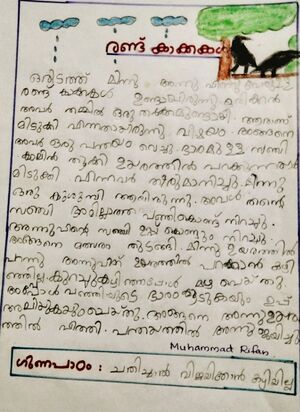 രണ്ട് കാക്കകൾ
ഒരിടത്ത് മിന്നു അന്നു എന്നു പേരുള്ള
രണ്ട് കാക്കകൾ ഉണ്ടായിരുന്നു. ഒരിക്കൽ
അവർ തമ്മിൽ ഒരു തർക്കമുണ്ടായി. ആരാണ്
മിടുക്കി എന്നതായിരുന്നു വിഷയം. അങ്ങനെ
അവർ ഒരു പന്തയം വെച്ചു. ഭാരമുള്ള സഞ്ചി
കാലിൽ തൂക്കി ഉയരത്തിൽ പറക്കുന്നതാരോ
മിടുക്കി എന്നവർ തീരുമാനിച്ചു. മിന്നു
ഒരു കുശുമ്പി ആയിരുന്നു. അവൾ തന്റെ
സഞ്ചി ഭാരമില്ലാത്ത പഞ്ഞികൊണ്ട് നിറച്ചു.
അന്നുവിന്റെ സഞ്ചി ഉപ്പ് കൊണ്ടും നിറച്ചു.
അങ്ങനെ മത്സരം തുടങ്ങി. മിന്നു ഉയരത്തിൽ
പറന്നു അന്നുവിന് ഉയരത്തിൽ പറക്കാൻ കഴി
ഞ്ഞില്ല. കുറച്ചുകഴിഞ്ഞപ്പോൾ മഴ പെയ്തു.
അപ്പോൾ പഞ്ഞിയുടെ ഭാരം കൂടുകയും ഉപ്പ്
അലിയുകയും ചെയ്തു. അങ്ങനെ അന്നു ഉയര
ത്തിൽ എത്തി. പന്തയത്തിൽ അന്നു ജയിച്ചു
Muhammad Rifan
ഗുണപാഠം : ചതിച്ചാൽ വിജയിക്കാൻ കഴിയില്ല